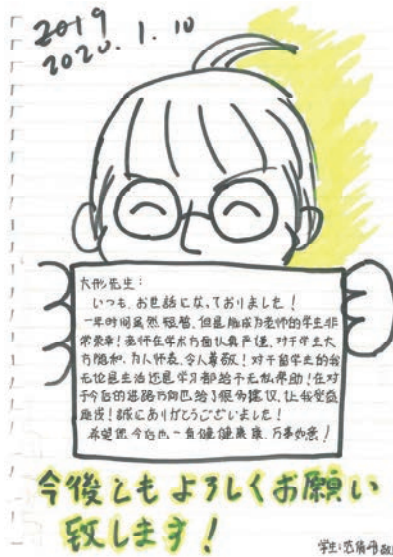 2019
2020.1.10
大形先生：
いつも、お世話になっておりました！
一年时间虽然短暂，但是能成为老师的学生非
常荣幸！老师在学术方面认真严谨，对于学生大
方随和，为人师表，令人尊敬！对于留学生的我
无论是生活还是学习都给予无私帮助！在对
于今后的进路方向也给了很多建议，让我受益
良多！誠にありがとうございました！
希望您今后也一直健健康康，万事如意！
今後ともよろしくお願い
致します！
学生：